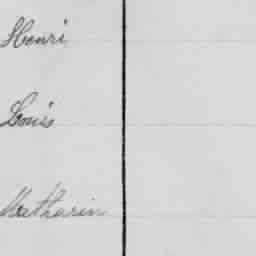 Henri
Louis
Matharin